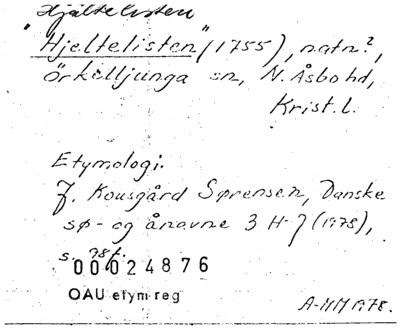 Hjältelisten
"Hjeltelisten" (1755), natn?,
Örkelljunga sn, N. Åsbo hd,
Krist. l.
Etymologi.
J. Kousgård Sørensen, Danske
sø- og ånavne 3 H-J (1978),
s. 98f.
00024876
OAU etym·reg
A-MM 1978.